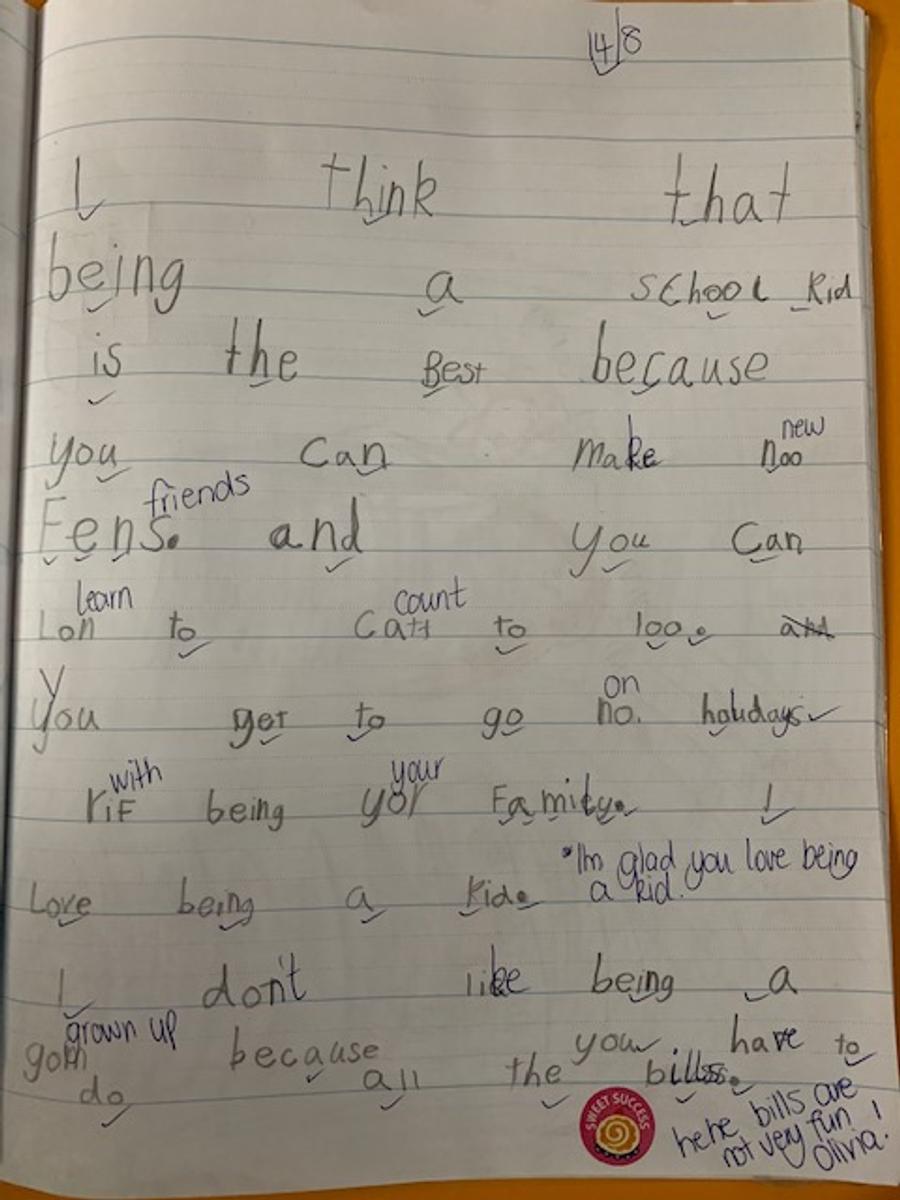 14/8
I think that
being a school kid
is the Best because
new
you can make noo
friends
Fens. and you can
learn count
Lon to catt to 100. and
on
You get to go no. holidays
with your
rif being yor Family. I
*I'm glad you love being
a kid.
Love being a kid.
I don't like being a
grown up
goln because you have to
do all the bills.
SWEET SUCCESS
hehe bills are
not very fun
Olivia!